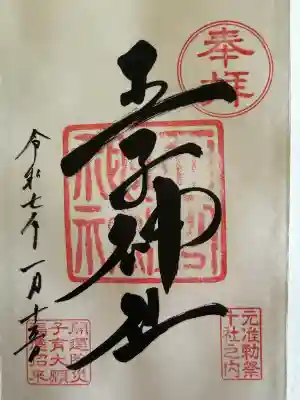 奉拝
王子神社
令和七年一月十
元准勅祭
十社之内
開運除災
子育大願
招来